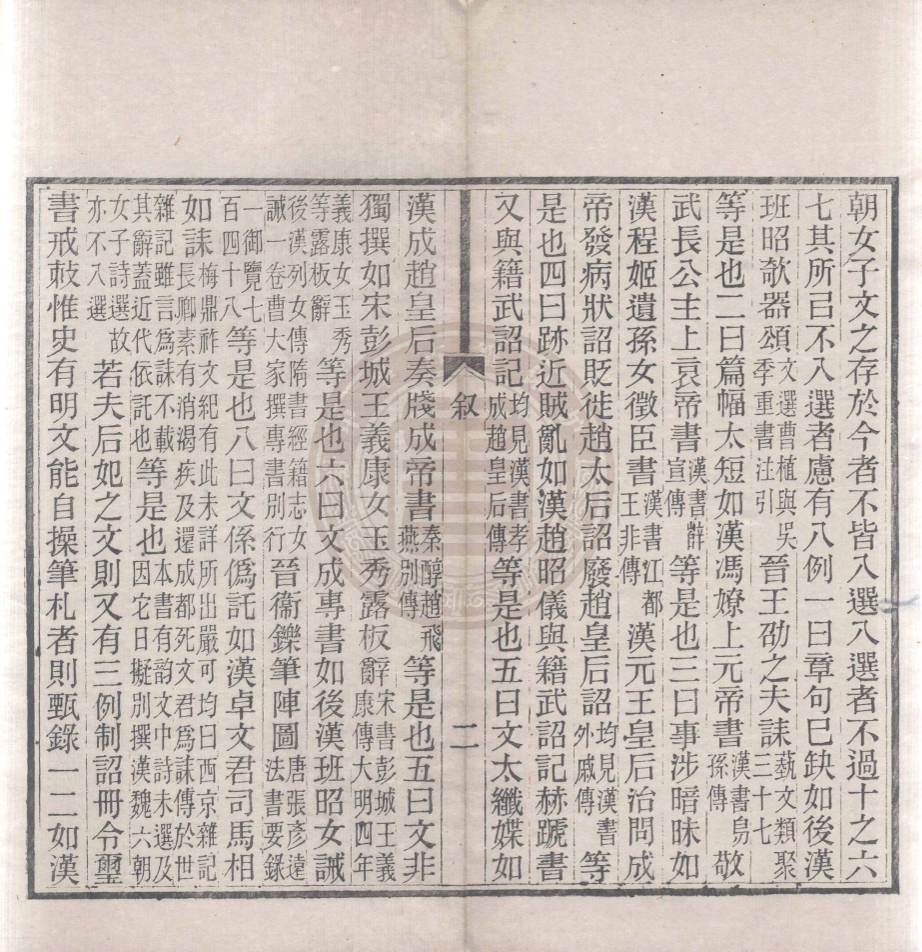 朝女子文之存於今者不皆入選入選者不過十之六
七其所㠯不入選者慮有八例一曰章句已缺如後漢
班昭欹器頌文選曹植與吳季重書注引晉王劭之夫誄藝文類聚三十七
等是也二曰篇幅太短如漢馮嫽上元帝書漢書烏孫傳敬
武長公主上哀帝書漢書薛宣傳等是也三曰事涉暗昧如
漢程姬遺孫女徵臣書漢書江都王非傳漢元王皇后治問成
帝發病狀詔貶徙趙太后詔廢趙皇后詔均見漢書外戚傳等
是也四曰跡近賊亂如漢趙昭儀與籍武詔記赫蹏書
又與籍武詔記均見漢書孝成趙皇后傳等是也五曰文太纖媟如
叙 二
漢成趙皇后奏牋成帝書秦醇趙飛燕別傳等是也五曰文非
獨撰如宋彭城王義康女玉秀露板辭宋書彭城王義康傳大明四年
義康女玉秀等露板辭等是也六曰文成專書如後漢班昭女誡
後漢列女傳隋書經籍志女誡一卷曹大家撰專書別行晉衞鑠筆陣圖唐張彥遠法書要錄
一御覽七百四十八等是也八曰文係僞託如漢卓文君司馬相
如誄梅鼎祚文紀有此未詳所出嚴可均曰西京雜記長卿素有消渴疾及還成都死文君爲誄傳於世
雜記雖言爲誄不載其辭蓋近代依託也等是也本書有韵文中詩未選及因它日擬別撰漢魏六朝
女子詩選故亦不入選若夫后妃之文則又有三例制詔冊令璽
書戒敕惟史有明文能自操筆札者則甄錄一二如漢